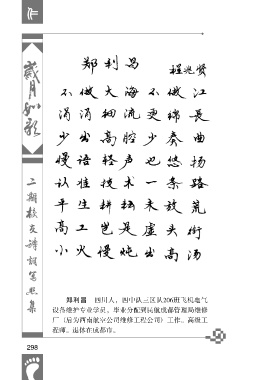 歲月如歌
二期校友诗词写照集
郑利昌
程兆贤
不做大海不做江
涓涓细流更绵長
少出高腔少奏曲
慢语轻声也悠扬
认准技术一条路
平生耕耘未放荒
高工岂是虚头衔
小火慢炖出高汤
郑利昌 四川人，四中队三区队206班飞机电气
设备维护专业学员。毕业分配到民航成都管理局维修
厂（后为西南航空公司维修工程公司）工作。高级工
程师。退休在成都市。
298